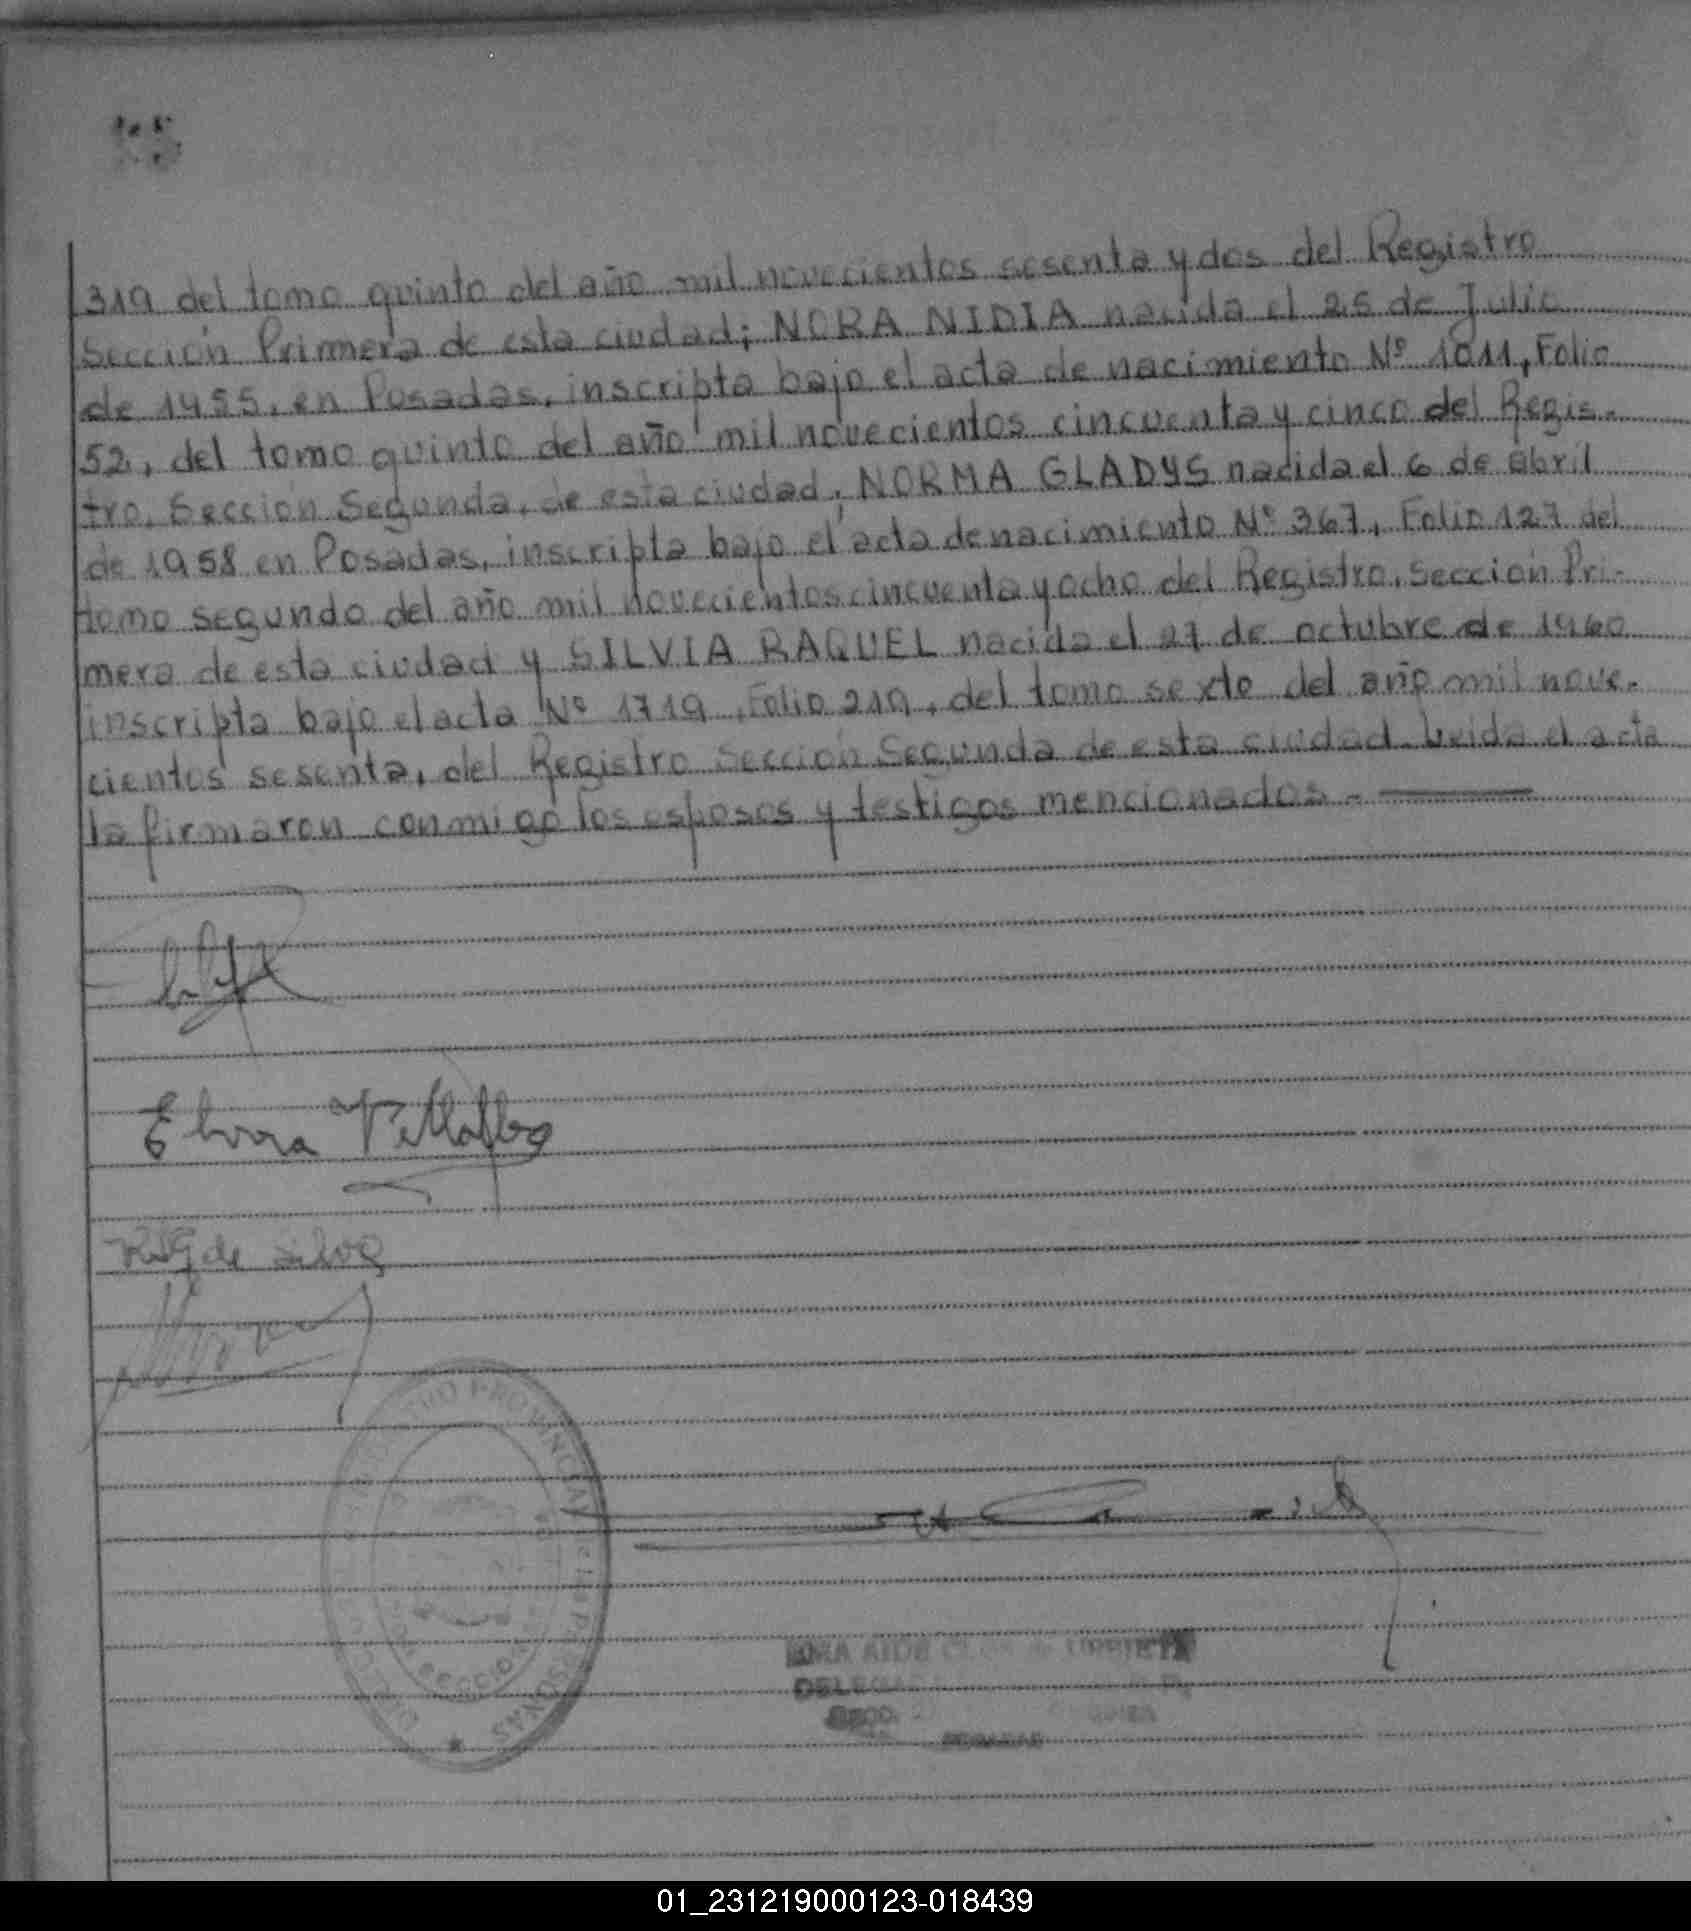 319 del tomo quinto del año mil novecientos sesenta y dos del Registro
Sección Primera de esta ciudad; NORA NIDIA nacida el 25 de Julio
de 1955, en Posadas, inscripta bajo el acta de nacimiento Nº 1011, Folio
52, del tomo quinto del año mil novecientos cincuenta y cinco del Regis-
tro, Sección Segunda, de esta ciudad, NORMA GLADYS nacida el 6 de abril
de 1958 en Posadas, inscripta bajo el acta de nacimiento Nº 367, Folio 127 del
tomo segundo del año mil novecientos cincuenta y ocho del Registro, Sección Pri-
mera de esta ciudad y SILVIA RAQUEL nacida el 27 de octubre de 1960
inscripta bajo el acta Nº 1719, Folio 219, del tomo sexto del año mil nove-
cientos sesenta, del Registro Sección Segunda de esta ciudad. Leida el acta
la firmaron conmigo los esposos y testigos mencionados.-
Elvira Villalba
de Silva
PROVINCIAL DE LAS PERSONAS
SECCION
AIDE
POSADAS
01_231219000123-018439